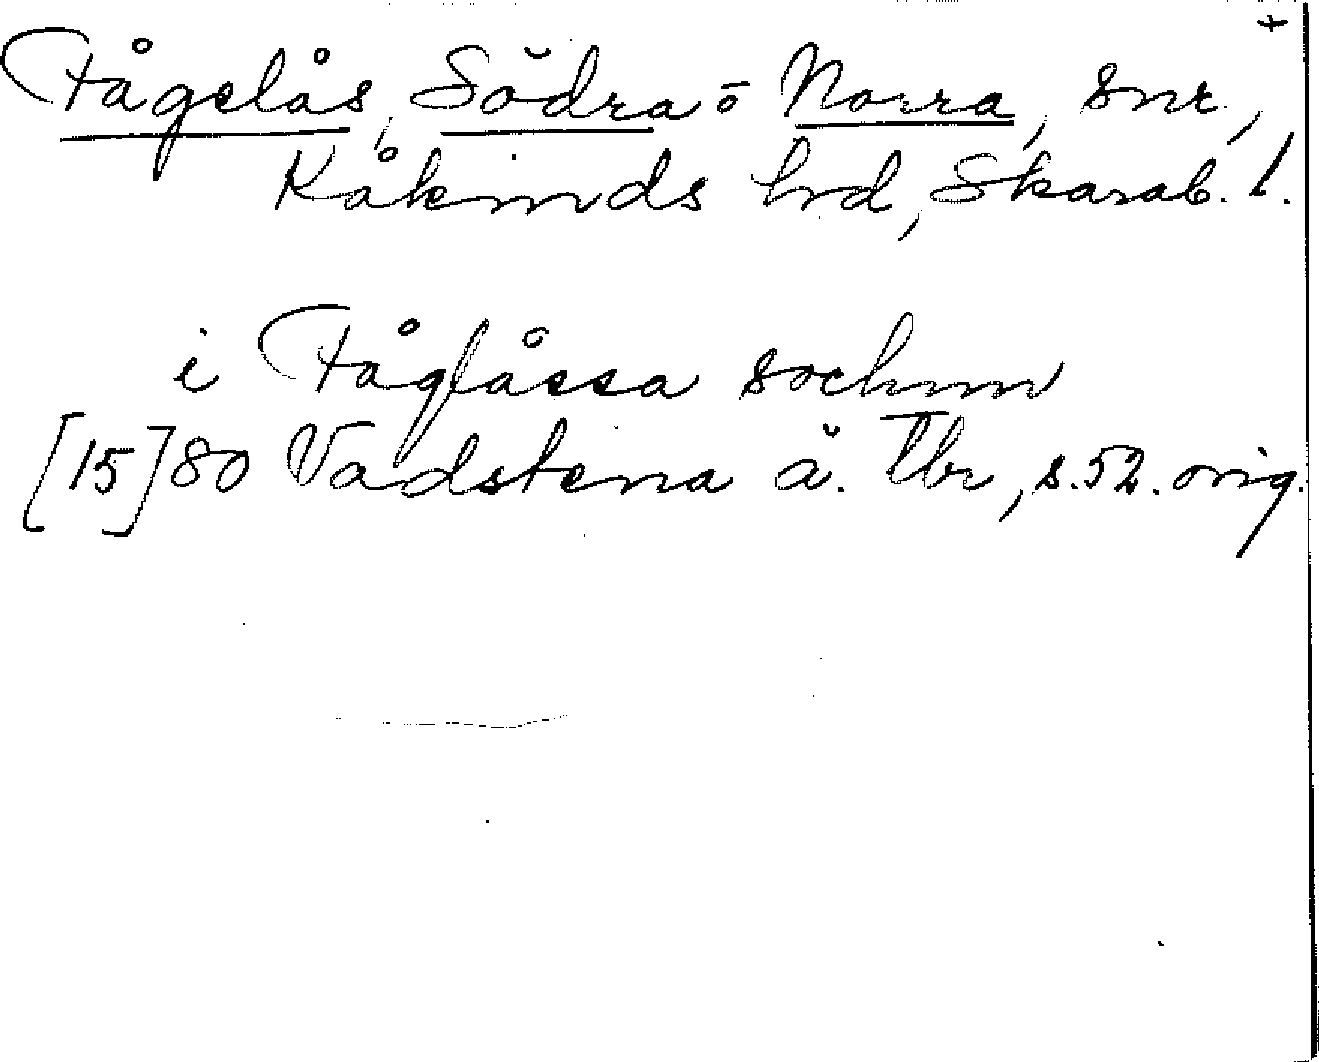 +
Fågelås, Södra o Norra, snr,
Kåkinds hrd, Skarab. l.
i Fåglåssa sochnn
[15]80 Vadstena ä. Tbr, s.52. orig.